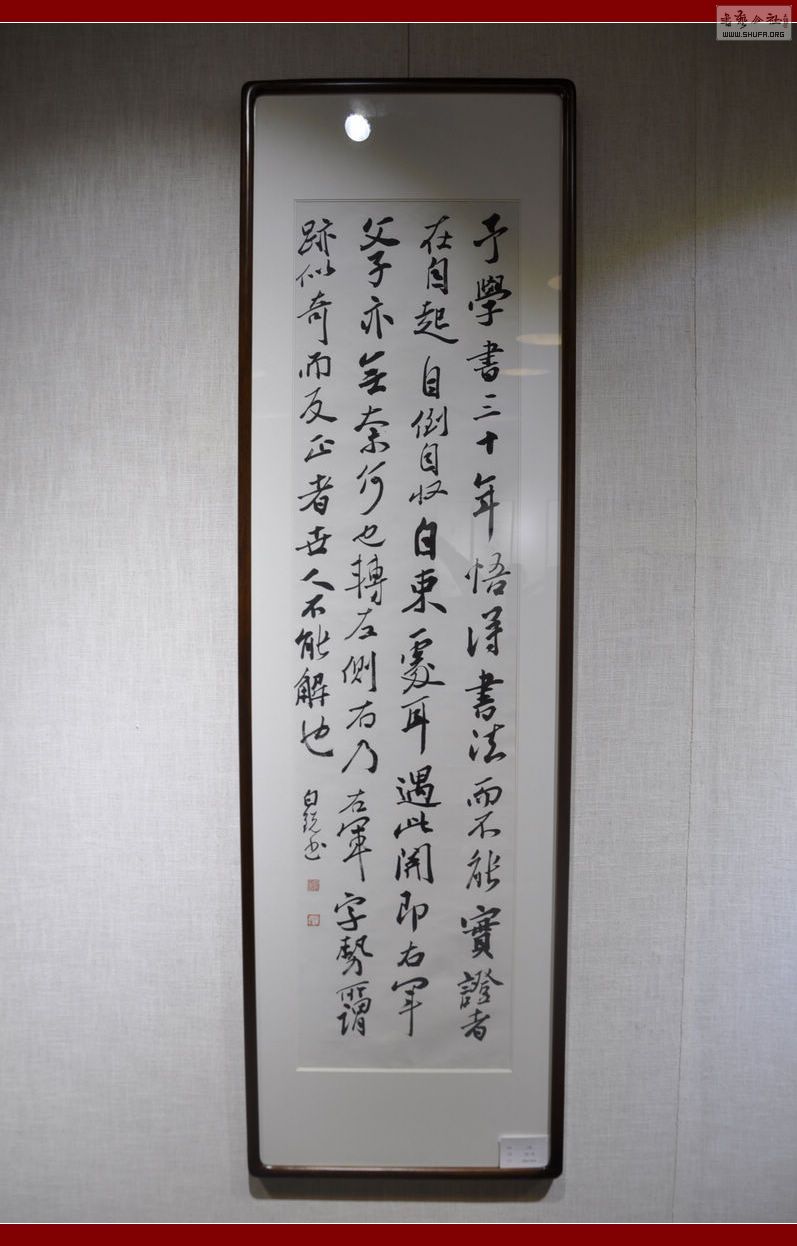 予學書三十年悟得書法而不能實證者
在自起自倒自收自束處耳過此關即右軍
父子亦無奈何也轉左側右乃右軍字勢所謂
跡似奇而反正者世人不能解也
白銳書
書藝公社
WWW.SHUFA.ORG